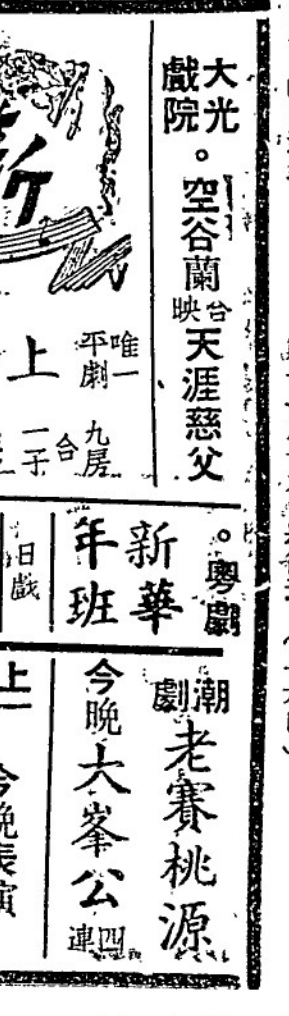 大光
戲院
。空谷蘭
合映
天涯慈父
唯一
平劇
九房
合
一子
上
新
。粵劇
新華
年班
日戲
潮劇
老賽桃源
今晚
大峯公
四連
上一
今晚表演